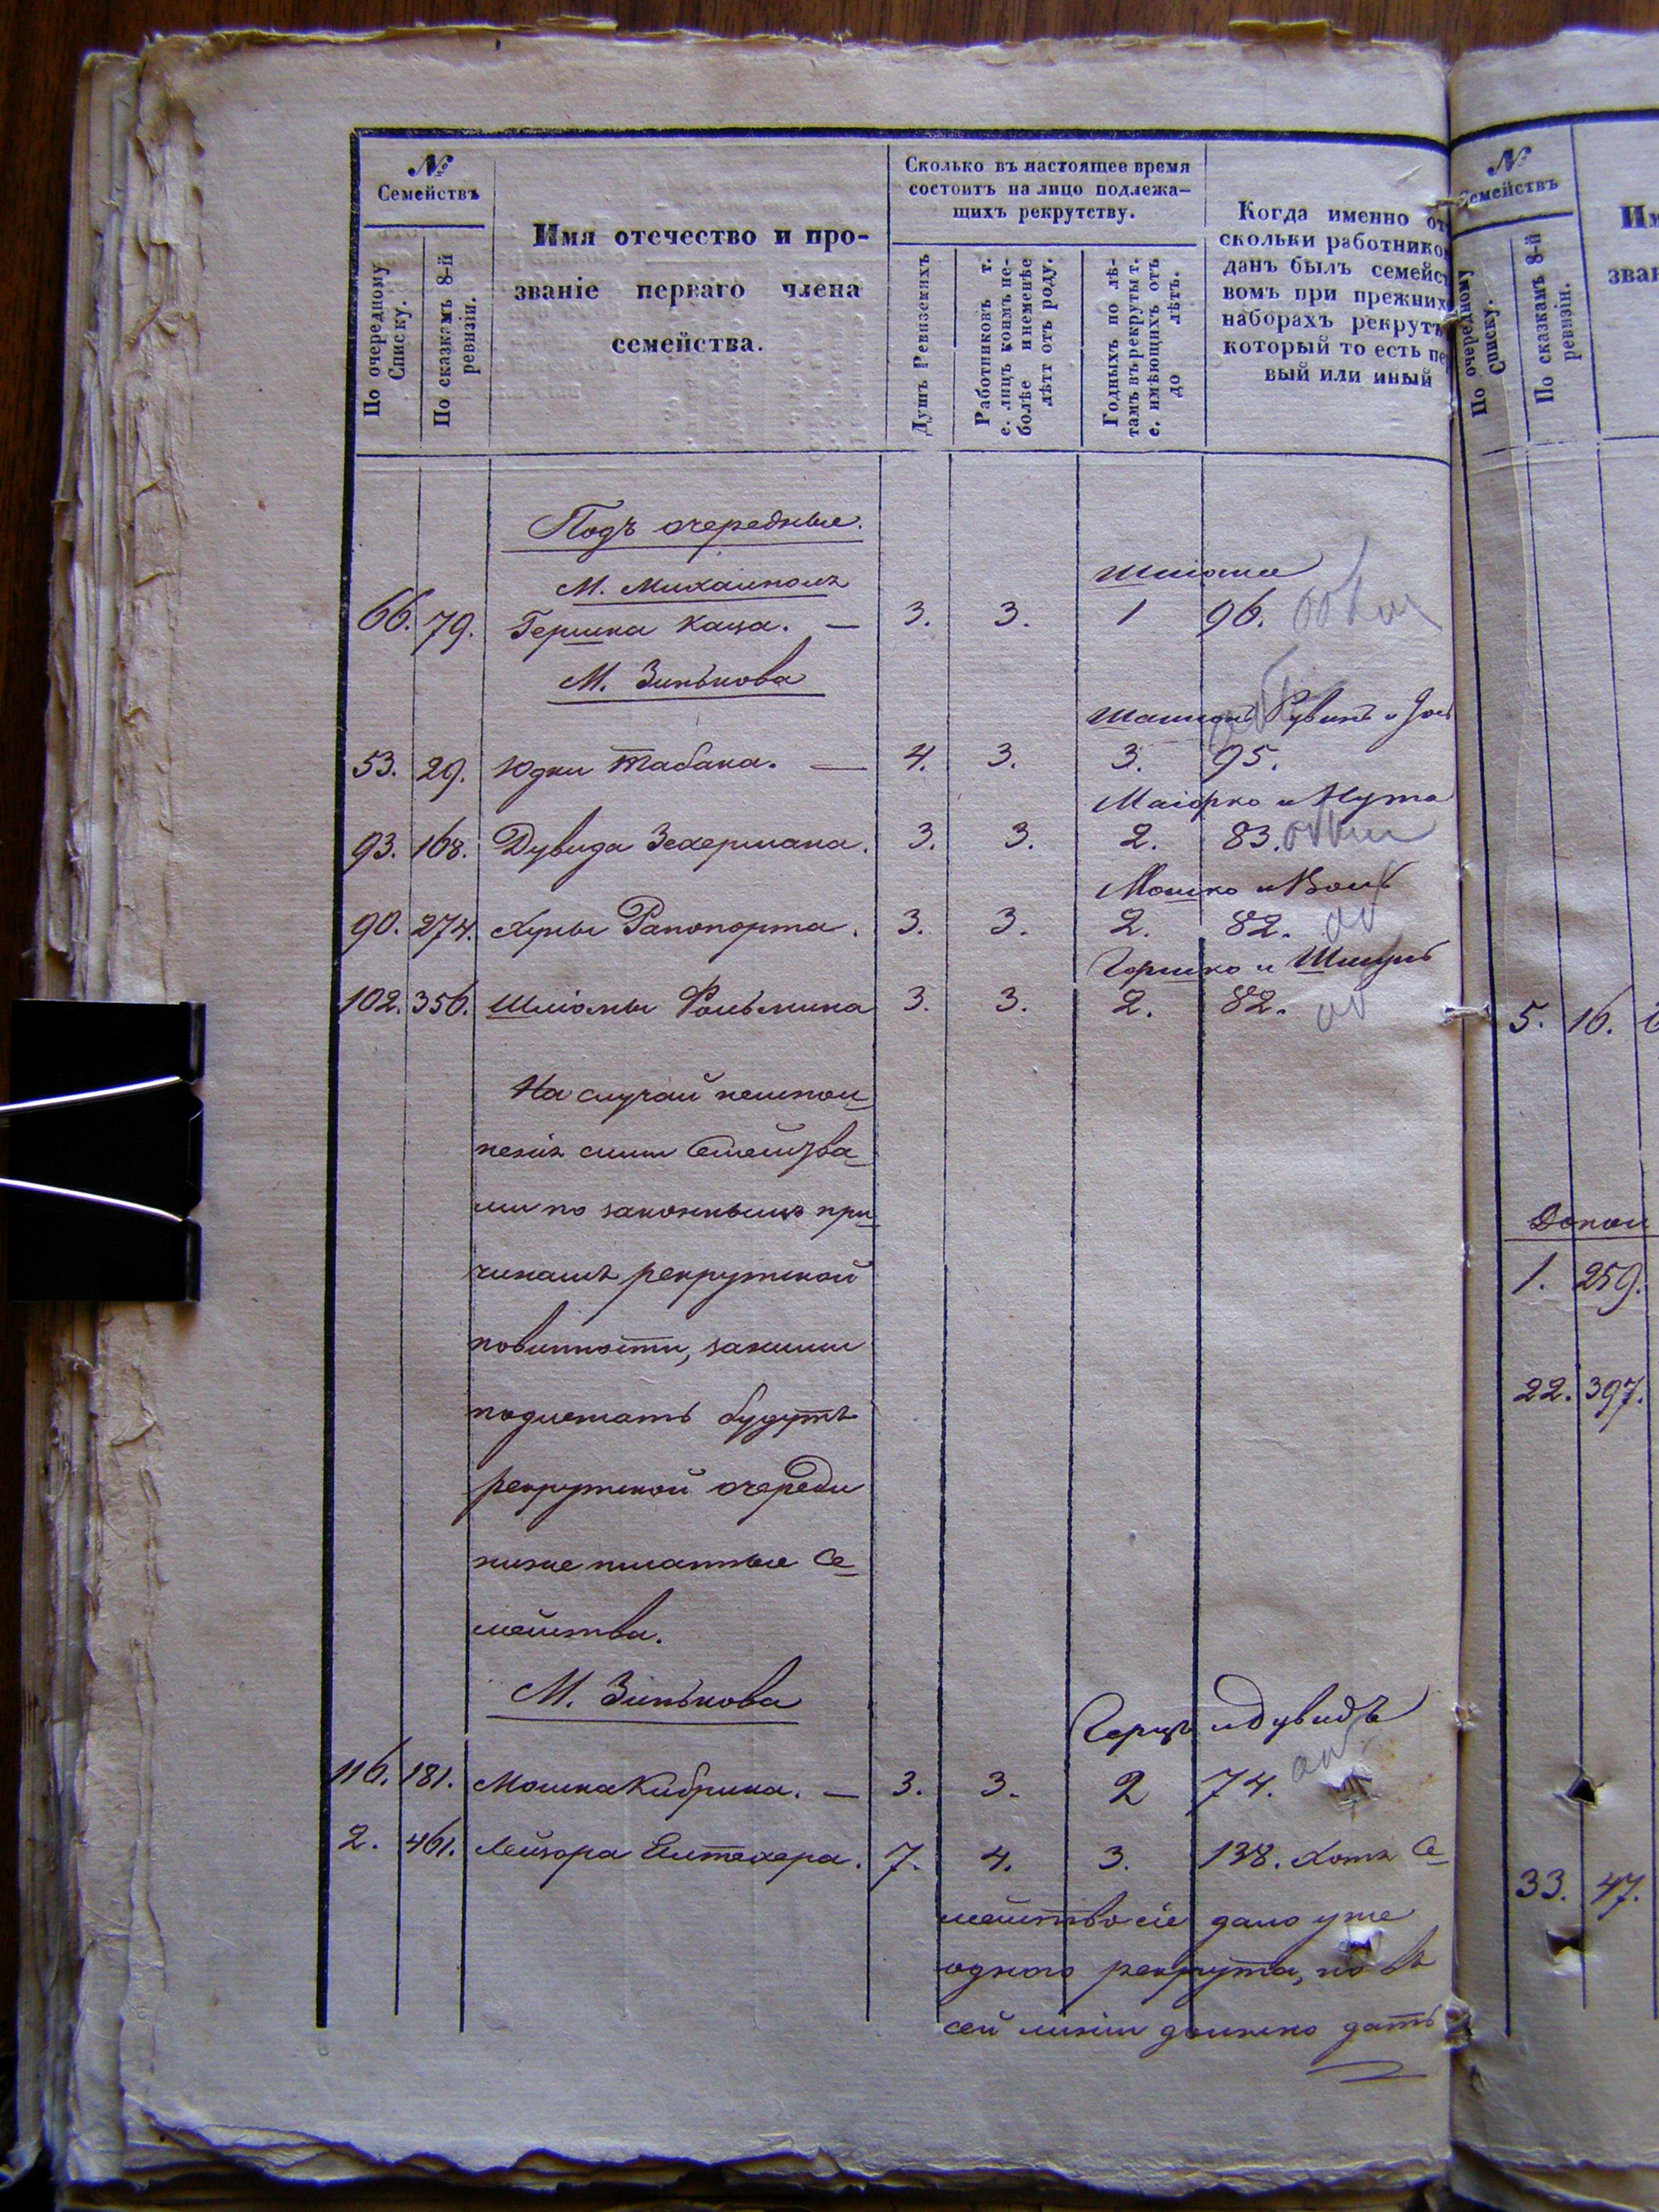 №
Семействъ
По очередному
Списку.
По сказкамъ 8-й
ревизіи.
Имя отечество и про-
званіе перваго члена
семейства.
Сколько въ настоящее время
состоитъ на лицо подлежа-
щихъ рекрутству.
Душъ Ревизскихъ
Работниковъ т.
е. лицъ коимъ не-
болѣе и неменѣе
лѣтъ отъ роду.
Годныхъ по лѣ-
тамъ въ рекруты т.
е. имѣющихъ отъ
до лѣтъ.
Когда именно от
скольки работнико
данъ былъ семейс
вомъ при прежних
наборахъ рекрут
который то есть пе
вый или иный
Подъ очередные.
М. Михалполя
Шліома
66. 79. Гершка Каца. — 3. 3. 1 96.
М. Зинькова
Рувинъ и
53. 29. Юдки Табака. — 4. 3. 3. 95.
Маіорко и Нута
93. 168. Дувида Зехермана. 3. 3. 2. 83.
Мошко и Воль
90. 274. Хуны Рапопорта. 3. 3. 2. 82.
Гершко и Шмуль
102. 356. Шліомы Фольмина 3. 3. 2. 82.
На случай неиспол-
ненія сими Семейства-
ми по законнымъ при-
чинамъ рекрутской
повинности, за ними
подлежать будутъ
рекрутской очереди
ниже писанные Се-
мейства.
М. Зинькова
Герцъ и Дувидъ
116. 181. Мошка Кибрика. — 3. 3. 2 74.
2. 461. Лейзора Елтехера. 7. 4. 3. 138. Хотя Се-
мейство сіе дало уже
одного рекрута, но въ
сей линіи должно дать
№
Семействъ
По очередному
Списку.
По сказкамъ 8-й
ревизіи.
Им
зван
5. 16.
Допол
1. 259.
22. 397.
33. 47.